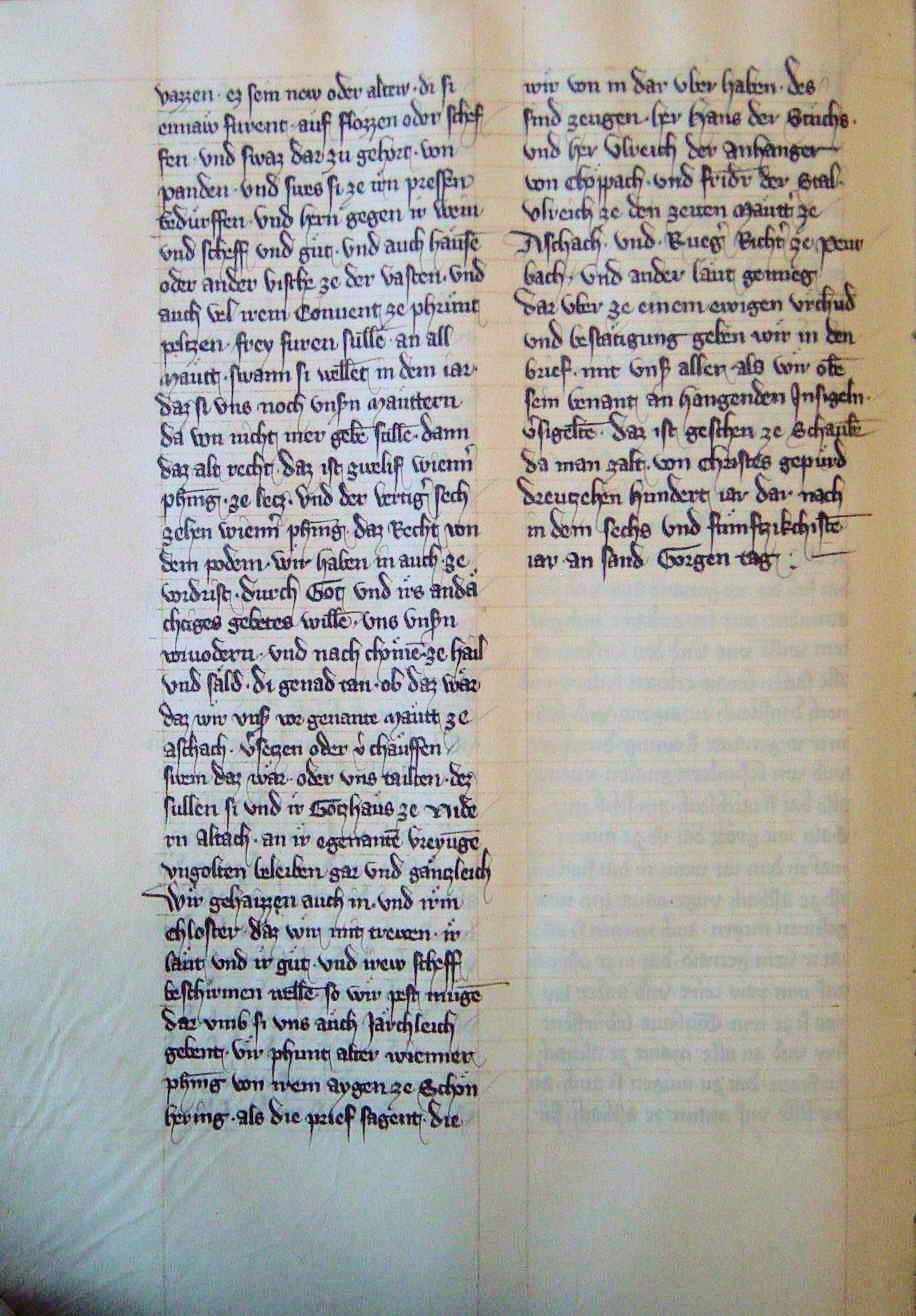 vazzen · ez sein new oder altew · di si
einaw furent · auf flozzen oder schef
fen · vnd swaz dar zu gehort · von
panden · vnd swes si ze irn pressen
bedürffen · vnd hern gegen ir wein
vnd scheff vnd güt · vnd auch hausē
oder ander vische ze der vasten · vnd
auch vel irem Conuent ze phrünt
peltzen · frey furen süllē · an all
mautt · swann si wellēt in dem iar ·
daz si vns noch vnsn mauttern
da von nicht mer gebē süllē · dann
daz alt recht · daz ist zwelif wienn
phēnig · ze letz · vnd der vertig sech
zehen wienn phēnig · daz Recht von
dem podem · wir haben in auch ze
vordrist · durch Got vnd irs anda
chtiges gebetes willē · vns vnsn
voruodern · vnd nach chomē · ze hail
vnd säld · di genad tan · ob daz wär
daz wir vnsr vor genante mautt ze
aschach · v̄setzen oder v̄chauffen
swem daz wär · oder vns tailten · dez
sullen si vnd ir Gotzhaus ze Nide
rn altach · an ir egenantē vreyūgē
vngolten beleiben gar vnd gänzleich
Wir gehaizzen auch in · vnd irm
chloster · daz wir mit trewen · ir
läut vnd ir güt · vnd irew scheff
beschirmen wellē so wir pest mugē
dar vmb si vns auch Järchleich
gebent · vir phunt alter wienner
phēnig von irem aygen ze Schön
hering · als die prief sagent · die
wir von in dar vber haben · des
sind zeugen · her Hans der Stuchs ·
vnd her Vlreich der anhanger
von Choppach · vnd fridr der Stal ·
Vlreich ze den zeiten Mautt ze
Aschach · vnd · Rueg Richt ze Peur
bach · vnd ander läut genueg
dar vber ze einem ewigen vrchūd
vnd bestätigung geben wir in den
brief · mit vnsr aller · als wir obē
sein benant an hangenden Insigeln ·
v̄sigeltē · daz ist geschen ze Schaubē
da man zalt · von christes gepürd
dreutzehen hundert iar dar nach
in dem sechs vnd fünftzikchistē
iar · an sand Gorgen tag ·